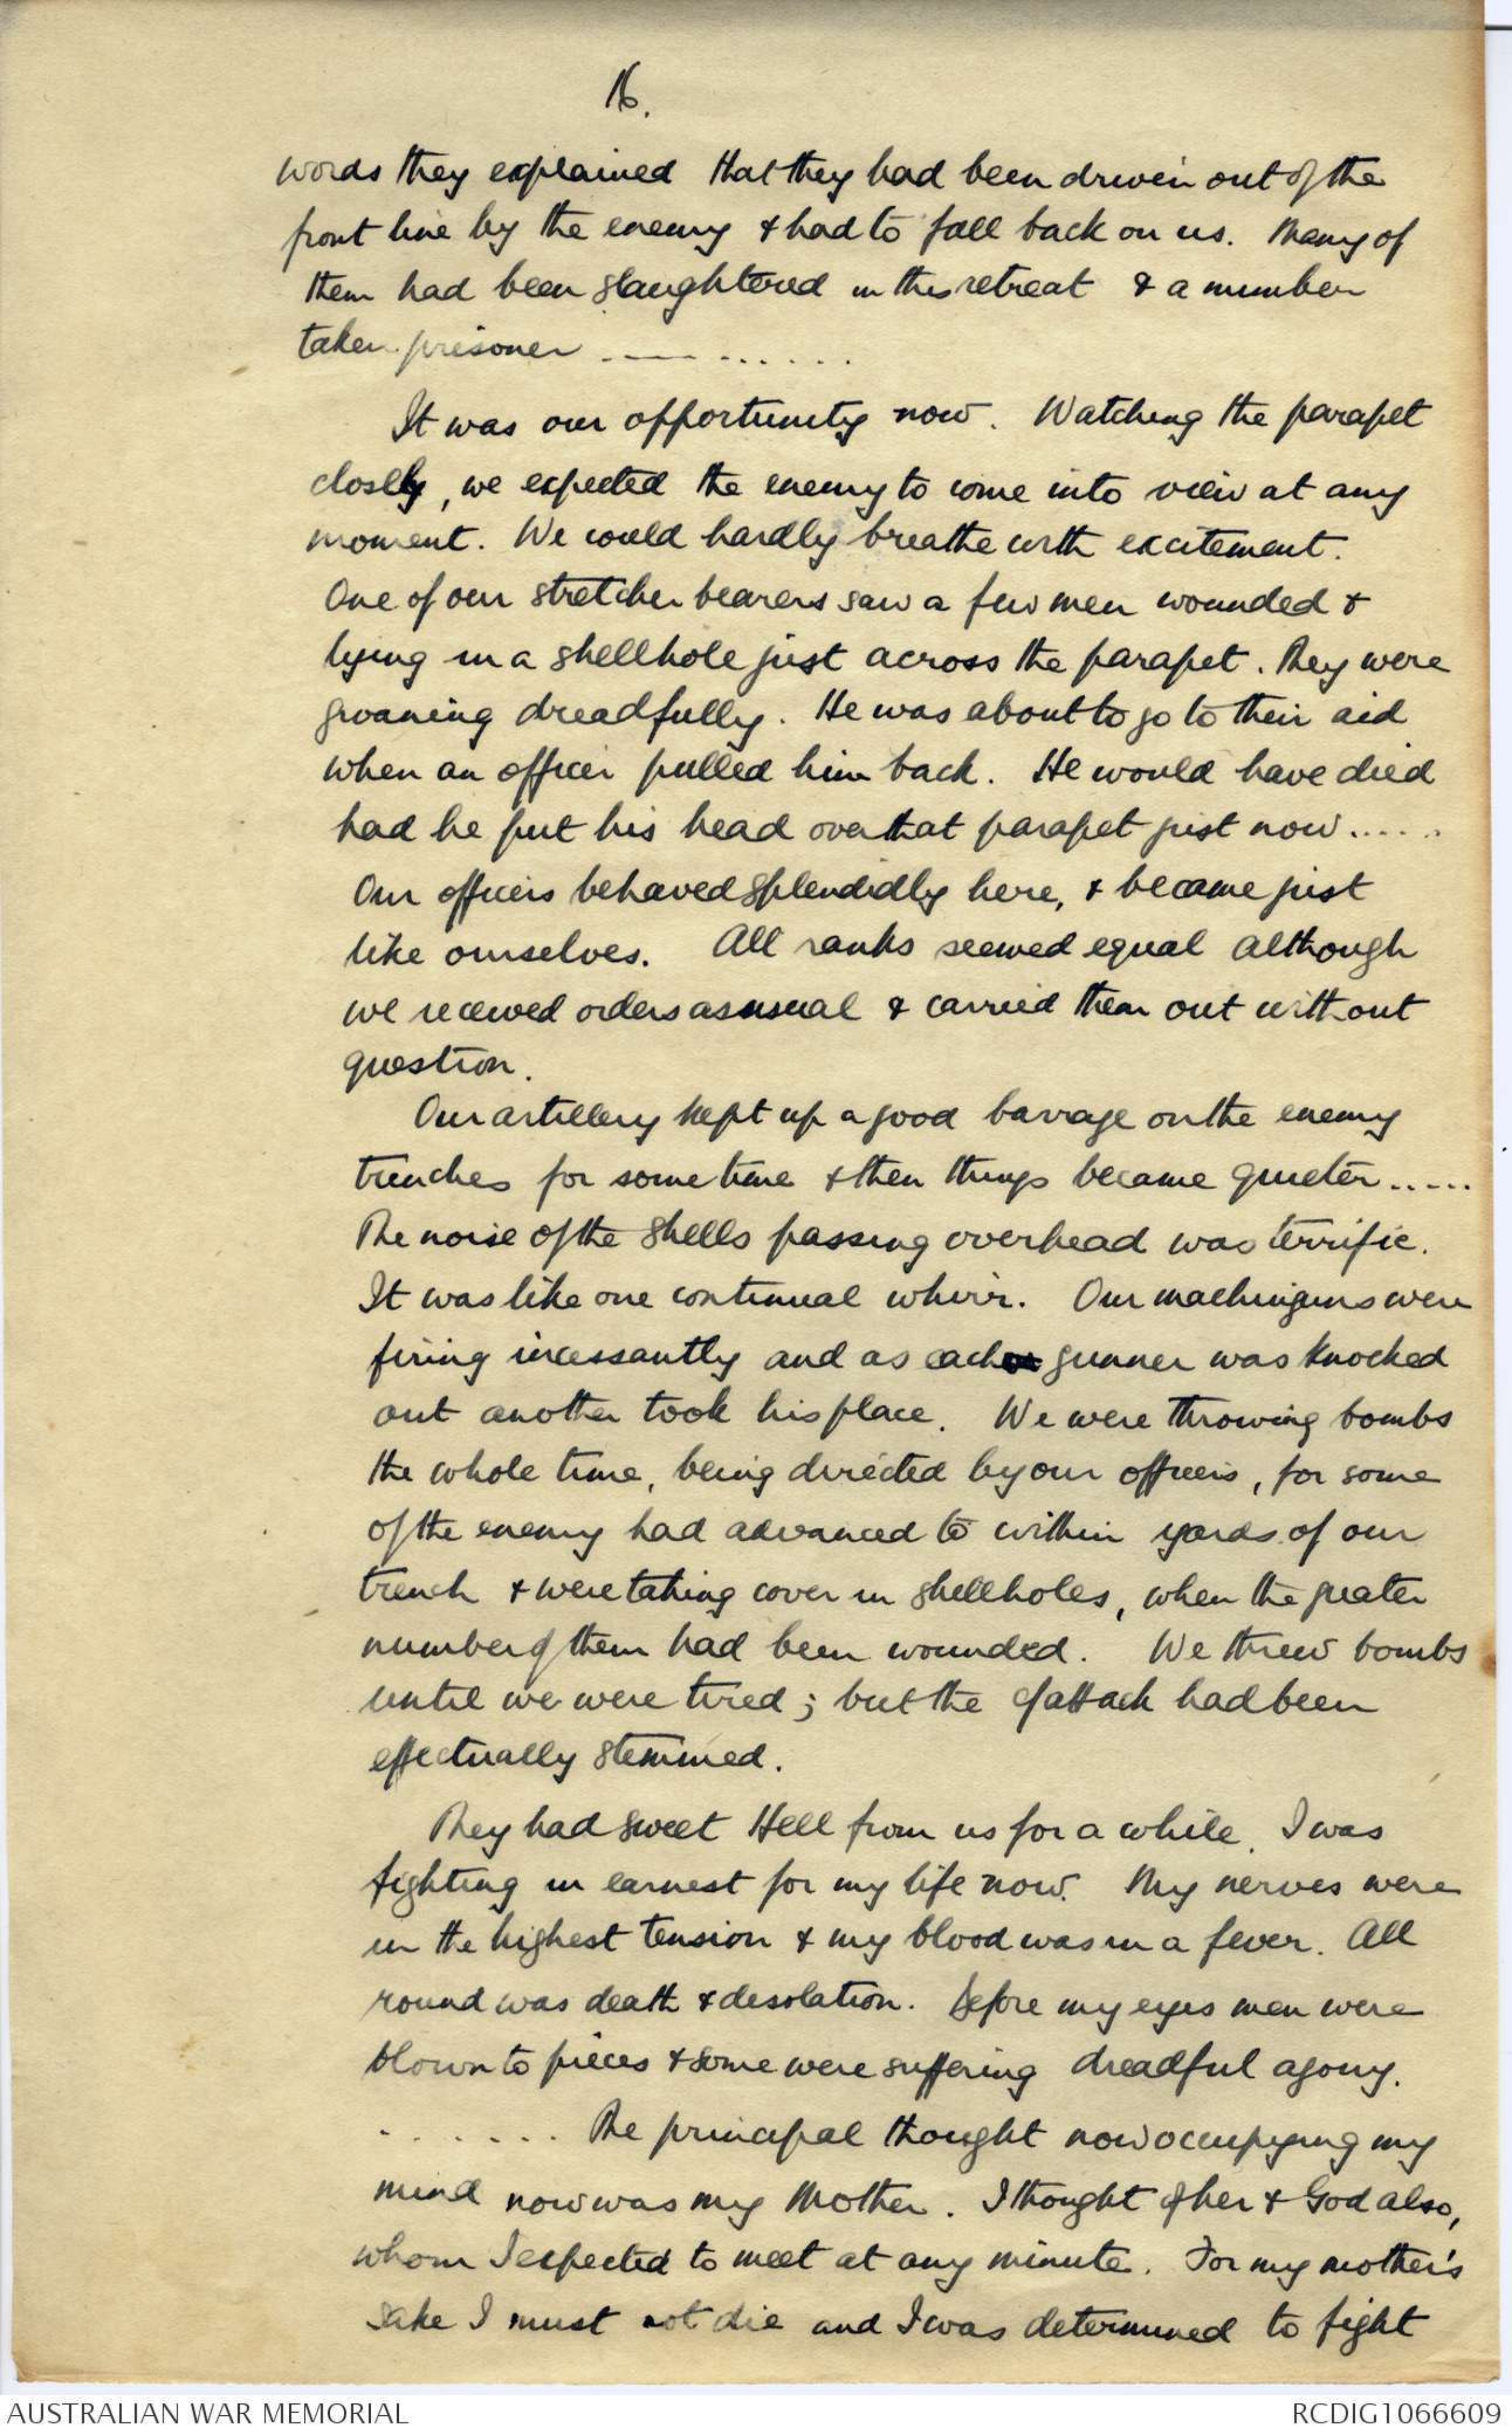 16.
words they explained that they had been driven out of the
front line by the enemy & had to fall back on us. Many of
them had been slaughtered in this retreat & a number
taken prisoner .— — . . . . . . .
It was our opportunity now. Watching the parapet
closely, we expected the enemy to come into view at any
moment. We could hardly breathe with excitement.
One of our stretcher bearers saw a few men wounded &
lying in a shellhole just across the parapet. They were
groaning dreadfully. He was about to go to their aid
when an officer pulled him back. He would have died
had he put his head over that parapet just now.....
Our officers behaved splendidly here, & became just
like ourselves. All ranks seemed equal although
we received orders as usual & carried them out without
question.
Our artillery kept up a good barrage on the enemy
trenches for some time & then things became quieter.....
The noise of the shells passing overhead was terrific.
It was like one continual whirr. Our machineguns were
firing incessantly and as each gunner was knocked
out another took his place. We were throwing bombs
the whole time, being directed by our officers, for some
of the enemy had advanced to within yards of our
trench & were taking cover in shellholes, when the greater
number of them had been wounded. We threw bombs
until we were tired; but the c/attack had been
effectually stemmed.
They had sweet Hell from us for a while. I was
fighting in earnest for my life now. My nerves were
in the highest tension & my blood was in a fever. All
round was death & desolation. Before my eyes men were
blown to pieces & some were suffering dreadful agony.
. . . . . . . The principal thought now occupying my
mind now was my Mother. I thought of her & God also,
whom I expected to meet at any minute. For my mother's
sake I must not die and I was determined to fight
AUSTRALIAN WAR MEMORIAL
RCDIG1066609